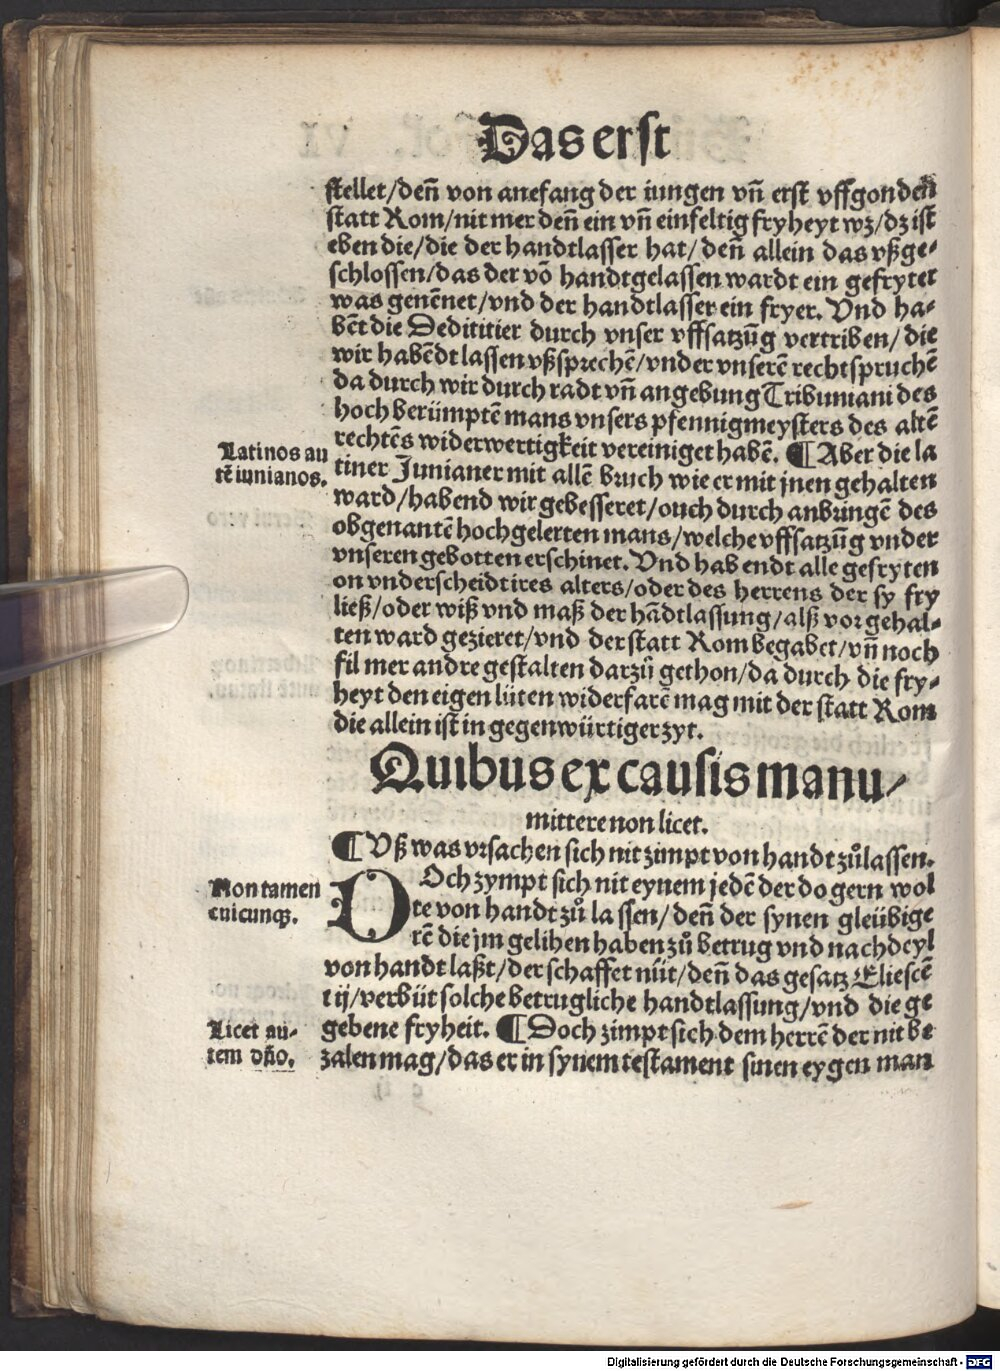 Das erst
stellet/deñ von anefang der iungen vñ erst vffgonden
statt Rom/nit mer deñ ein vñ einfeltig fryheyt wz/dz ist
eben die/die der handtlasser hat/deñ allein das vßge-
schlossen/das der võ handtgelassen wardt ein gefryter
was genẽnet/vnd der handtlasser ein fryer. Vnd ha-
bẽt die Dedititier durch vnser vffsatzũg vertriben/die
wir habẽdt lassen vßsprechẽ/vnder vnserẽ rechtspruchẽ
da durch wir durch radt vñ angebung Tribuniani des
hoch berümptẽ mans vnsers pfennigmeysters des altẽ
rechtẽs widerwertigkeit vereiniget habẽ. ¶ Aber die la
Latinos au
tẽ iunianos.
tiner Junianer mit allẽ bruch wie er mit jnen gehalten
ward/habend wir gebesseret/ouch durch anbringẽ des
obgenantẽ hochgelerten mans/welche vffsatzũg vnder
vnseren gebotten erschinet. Vnd hab endt alle gefryten
on vnderscheidt ires alters/oder des herrens der sy fry
ließ/oder wiß vnd maß der hãdtlassung/alß vor gehal-
ten ward gezieret/vnd der statt Rom begabet/vñ noch
fil mer andre gestalten darzů gethon/da durch die fry-
heyt den eigen lüten widerfarẽ mag mit der statt Rom
die allein ist in gegenwürtiger zyt.
Quibus ex causis manu/
mittere non licet.
¶ Vß was vrsachen sich nit zimpt von handt zůlassen.
Non tamen
cuicunqꝫ.
DOch zympt sich nit eynem jedẽ der do gern wol
te von handt zů la ssen/deñ der synen gleübige
rẽ die jm gelihen haben zů betrug vnd nachdeyl
von handt laßt/der schaffet nüt/deñ das gesatz Eliescẽ
tij/verbüt solche betrugliche handtlassung/vnd die ge
Licet au-
tem dño.
gebene fryheit. ¶ Doch zimpt sich dem herrẽ der nit be
zalen mag/das er in synem testament sinen eygen man
Digitalisierung gefördert durch die Deutsche Forschungsgemeinschaft - DFG